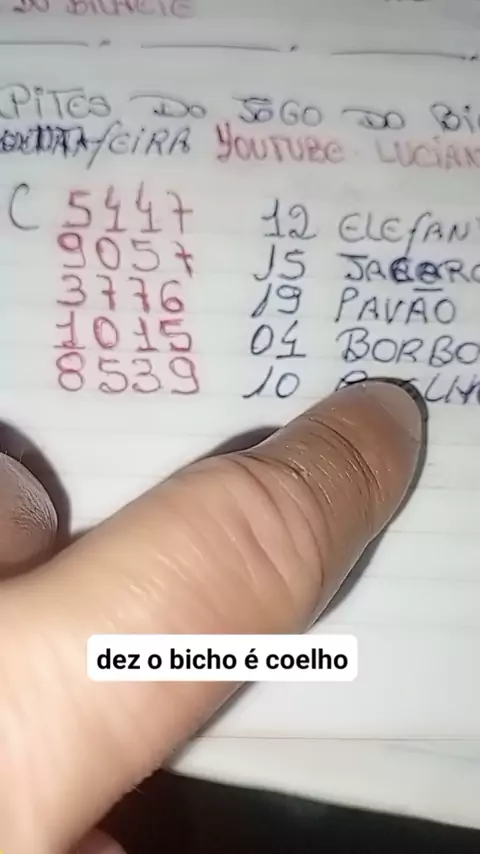 DO BILHETE
PITES DO JOGO DO BI
FEIRA YOUTUBE LUCIAN
C 5447 12 ELEFAN
9057 15 JACARO
3776 19 PAVÃO
1015 04 BORBO
8539 10
dez o bicho é coelho